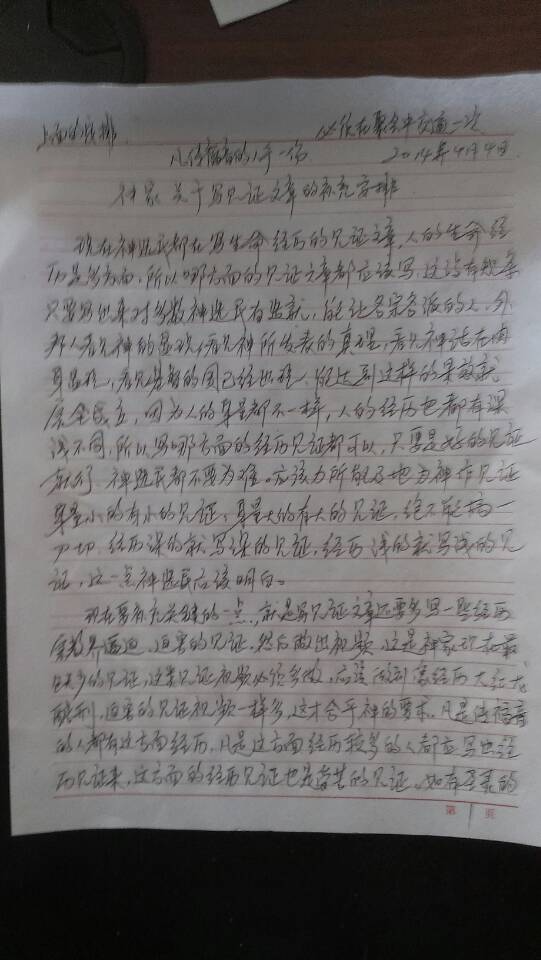 上面的安排
必须在聚会中交通一次
凡传福音的人手一份
2014年4月4日
神家关于写见证文章的补充安排
现在神选民都在写生命经历的见证文章，人的生命经
历是多方面，所以哪方面的见证文章都应该写，这没有规条
只要写出来对多数神选民有造就，能让各宗各派的人、外
邦人看见神的显现，看见神所发表的真理，看见神话在肉
身显现，看见基督的国已经出现，能达到这样的果效就
完全成立，因为人的身量都不一样，人的经历也都有深
浅不同，所以写哪方面的经历见证都可以，只要是好的见证
就行，神选民都不要为难。应该力所能及地为神作见证
身量小的有小的见证，身量大的有大的见证，绝不能搞一
刀切，经历深的就写深的见证，经历浅的就写浅的见
证，这一点神选民应该明白。
现在要补充关键的一点，就是写见证文章还要多写一些经历
宗教界逼迫、迫害的见证，然后做出视频，这是神家现在最
缺少的见证，这类见证视频必须多做，应该做到像经历大红龙
酷刑、迫害的见证视频一样多，这才合乎神的要求。凡是传福音
的人都有这方面经历，凡是这方面经历较多的人都应写出经
历见证来，这方面的经历见证也是当尽的见证。如有
第 1 页